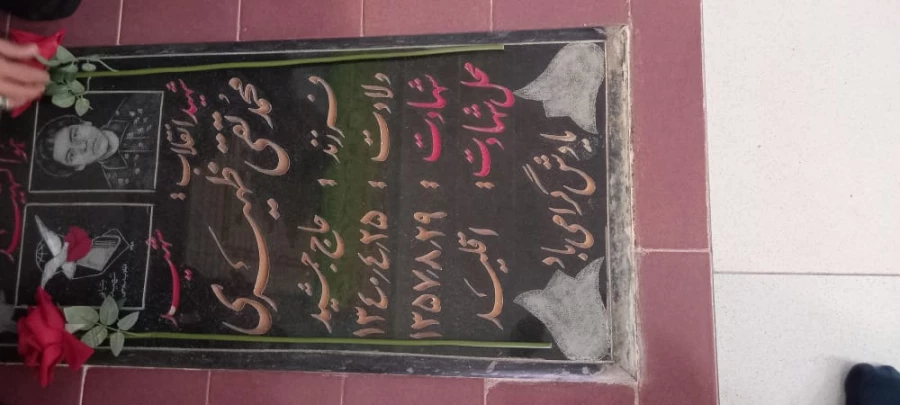 شهید
شهید انقلاب:
محمد تقی ظهیری
فرزند: حاج جمشید
ولادت: ۱۳۴۰٫۴٫۲۵
شهادت: ۱۳۵۷٫۸٫۲۹
محل شهادت: اقلید
یادش گرامی باد